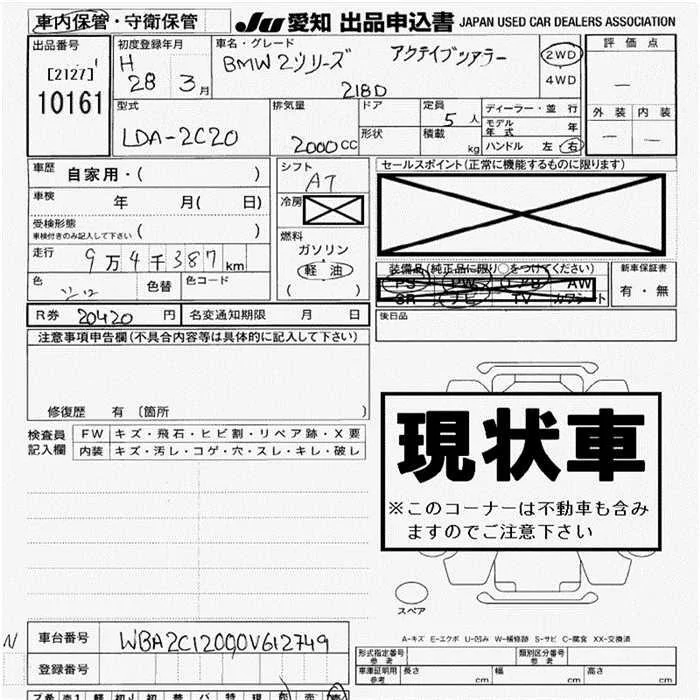 車内保管・守衛保管 JU 愛知 出品申込書 JAPAN USED CAR DEALERS ASSOCIATION
出品番号 初度登録年月 車名・グレード 評価点
[2127] H 28 3月 BMW 2シリーズ アクティブツアラー 2WD 4WD －
10161 218D
型式 排気量 ドア 定員 5人 ディーラー・並行 外装 内装
LDA-2C20 2000CC 形状 積載 kg モデル年式 年 － －
ハンドル 左 右
車歴 自家用・( ) シフト AT セールスポイント(正常に機能するものに限ります)
車検 年 月( 日) 冷房
受検形態 ( )
車検付きのみ記入して下さい
燃料
走行 9万4千387km ガソリン
軽油
( )
装備品(純正品に限り○をつけてください) 新車保証書
PS PW AW 有・無
SR ナビ TV カワシート
色 色替 色コード
後日品
R券 20420円 名変通知期限 月 日
注意事項申告欄(不具合内容等は具体的に記入して下さい)
修復歴 有 〔箇所 〕
検査員 FW キズ・飛石・ヒビ割・リペア跡・X要
記入欄 内装 キズ・汚レ・コゲ・穴・スレ・キレ・破レ
現状車
※このコーナーは不動車も含み
ますのでご注意下さい
スペア
A-キズ E-エクボ U-凹み W-補修跡 S-サビ C-腐食 XX-交換済
N 車台番号 WBA2C12000V612749
登録番号
形式指定番号 参考 類別区分番号 参考
車庫証明用 参考 長さ cm 幅 cm 高さ cm